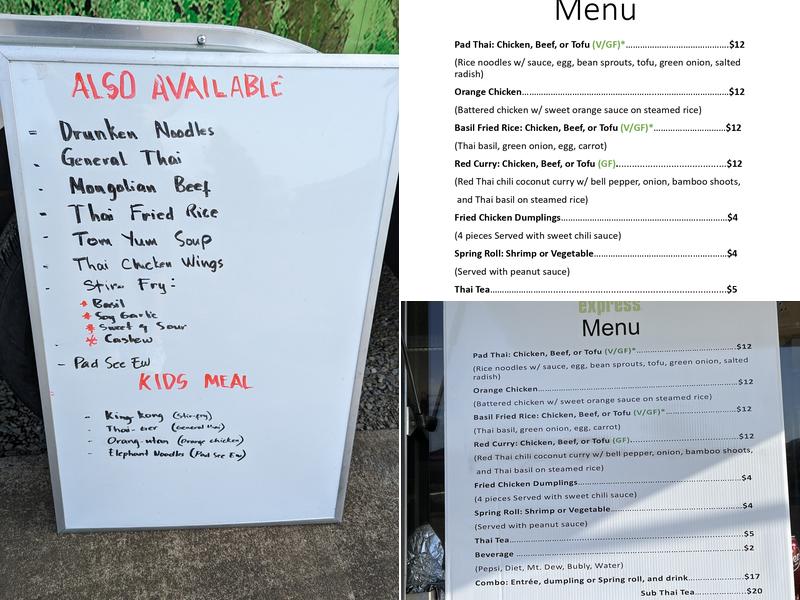 ALSO AVAILABLE
= Drunken Noodles
- General Thai
- Mongolian Beef
- Thai Fried Rice
- Tom Yum Soup
- Thai Chicken Wings
- Stir Fry:
* Basil
* Soy Garlic
* Sweet & Sour
* Cashew
- Pad See Ew
KIDS MEAL
- King Kong (Stir-fry)
- Thai-ger (General Thai)
- Orang-utan (Orange chicken)
- Elephant Noodles (Pad See Ew)
Menu
Pad Thai: Chicken, Beef, or Tofu (V/GF)*.......................................$12
(Rice noodles w/ sauce, egg, bean sprouts, tofu, green onion, salted
radish)
Orange Chicken..............................................................................$12
(Battered chicken w/ sweet orange sauce on steamed rice)
Basil Fried Rice: Chicken, Beef, or Tofu (V/GF)*............................$12
(Thai basil, green onion, egg, carrot)
Red Curry: Chicken, Beef, or Tofu (GF)..........................................$12
(Red Thai chili coconut curry w/ bell pepper, onion, bamboo shoots,
and Thai basil on steamed rice)
Fried Chicken Dumplings...............................................................$4
(4 pieces Served with sweet chili sauce)
Spring Roll: Shrimp or Vegetable...................................................$4
(Served with peanut sauce)
Thai Tea..........................................................................................$5
express
Menu
Pad Thai: Chicken, Beef, or Tofu (V/GF)*.......................................$12
(Rice noodles w/ sauce, egg, bean sprouts, tofu, green onion, salted
radish)
Orange Chicken..............................................................................$12
(Battered chicken w/ sweet orange sauce on steamed rice)
Basil Fried Rice: Chicken, Beef, or Tofu (V/GF)*............................$12
(Thai basil, green onion, egg, carrot)
Red Curry: Chicken, Beef, or Tofu (GF)..........................................$12
(Red Thai chili coconut curry w/ bell pepper, onion, bamboo shoots,
and Thai basil on steamed rice)
Fried Chicken Dumplings...............................................................$4
(4 pieces Served with sweet chili sauce)
Spring Roll: Shrimp or Vegetable...................................................$4
(Served with peanut sauce)
Thai Tea..........................................................................................$5
Beverage ........................................................................................$2
(Pepsi, Diet, Mt. Dew, Bubly, Water)
Combo: Entrée, dumpling or Spring roll, and drink......................$17
Sub Thai Tea...............$20